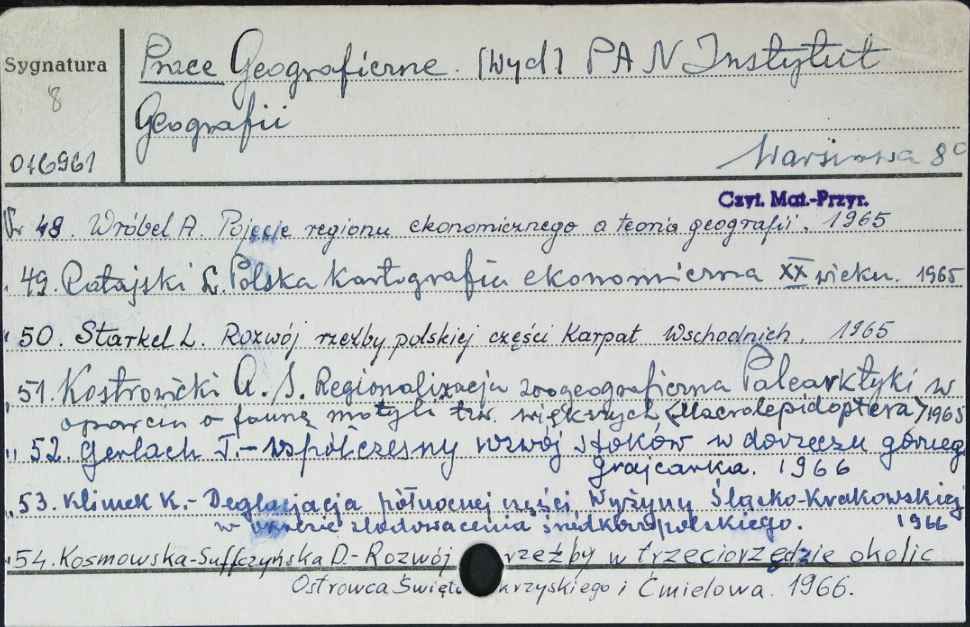 Sygnatura
8
016961
Prace Geograficzne. [Wyd] PAN Instytut
Geografii
Warszawa 8°
Czyt. Mat.-Przyr.
Nr 48. Wróbel A. Pojęcie regionu ekonomicznego a teoria geografii. 1965
" 49. Ratajski L. Polska kartografia ekonomiczna XX wieku. 1965
" 50. Starkel L. Rozwój rzeźby polskiej części Karpat Wschodnich. 1965
" 51. Kostrowicki A.S. Regionalizacja zoogeograficzna Palearktyki w
oparciu o faunę motyli tzw. większych (Macrolepidoptera) 1965
" 52. Gerlach T.- Współczesny rozwój stoków w dorzeczu górneg
Grajcarka. 1966
" 53. Klimek K.- Deglacjacja północnej części Wyżyny Śląsko-Krakowskiej
w okresie zlodowacenia środkowopolskiego. 1966
" 54. Kosmowska-Suffczyńska D.- Rozwój rzeźby w trzeciorzędzie okolic
Ostrowca Święto krzyskiego i Ćmielowa. 1966.